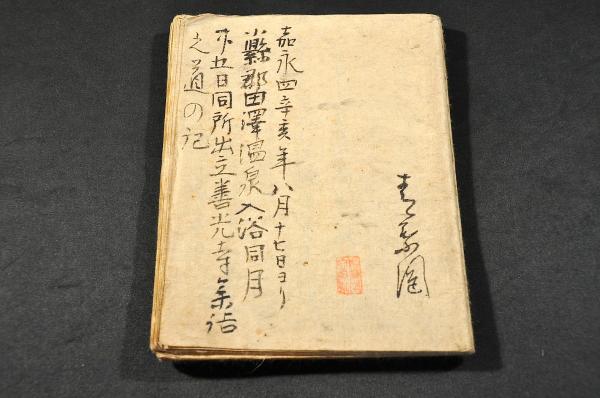 嘉永四辛亥年八月十七日ヨリ
小縣郡田澤温泉入浴同月
廿五日同所出立善光寺参詣
之道の記